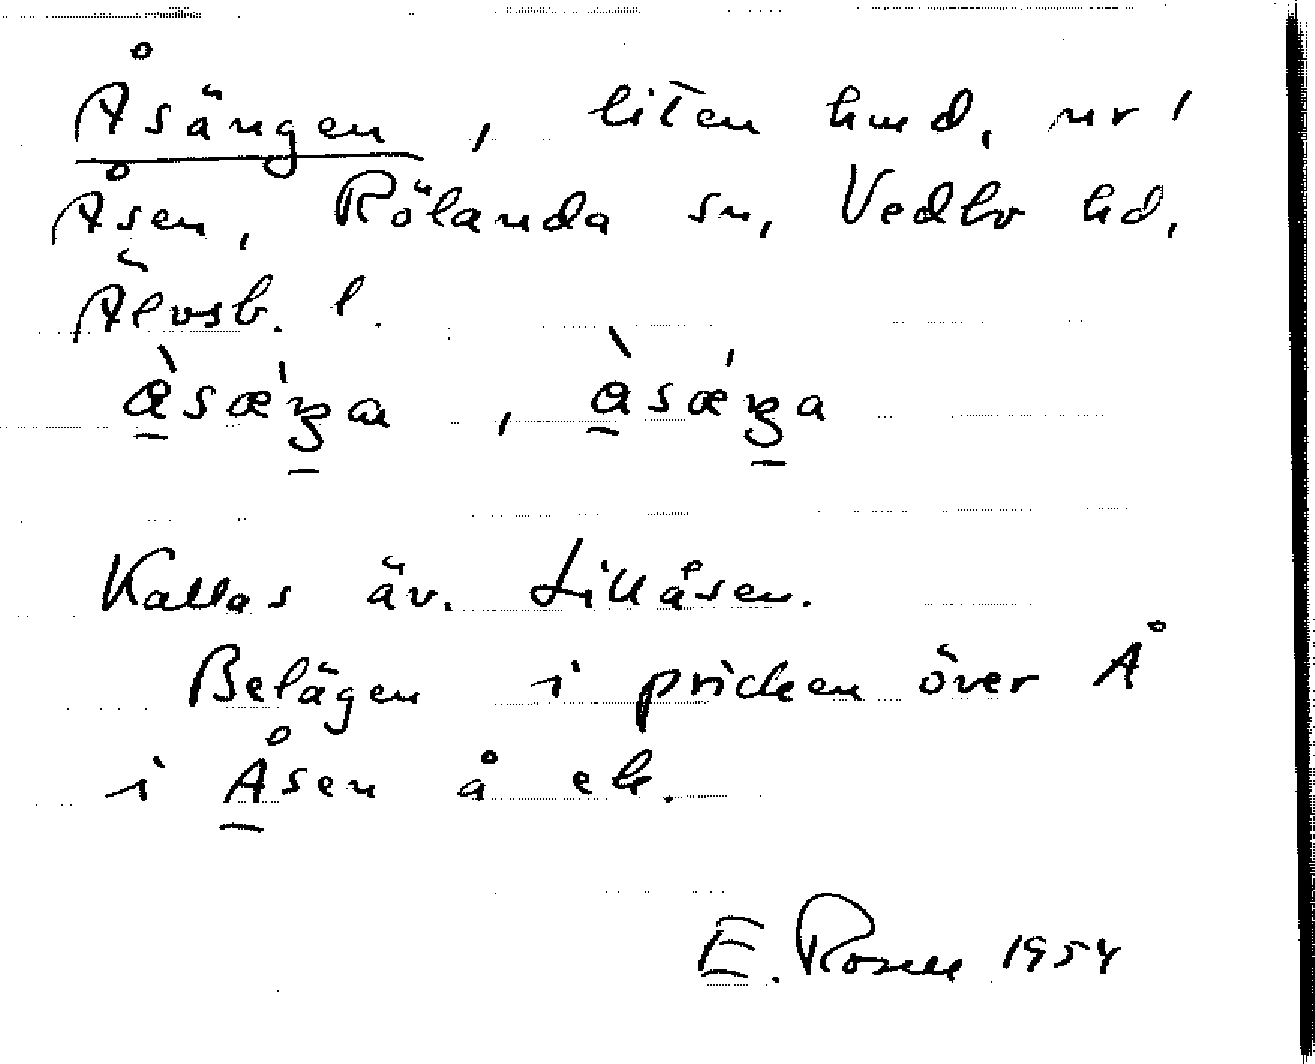 Åsängen, liten hmd, nr 1
Åsen, Rölanda sn, Vedbo hd,
Älvsb. l.
Kallas äv. Lillåsen.
Belägen i pricken över Å
i Åsen å ek.
E. Rosell 1954